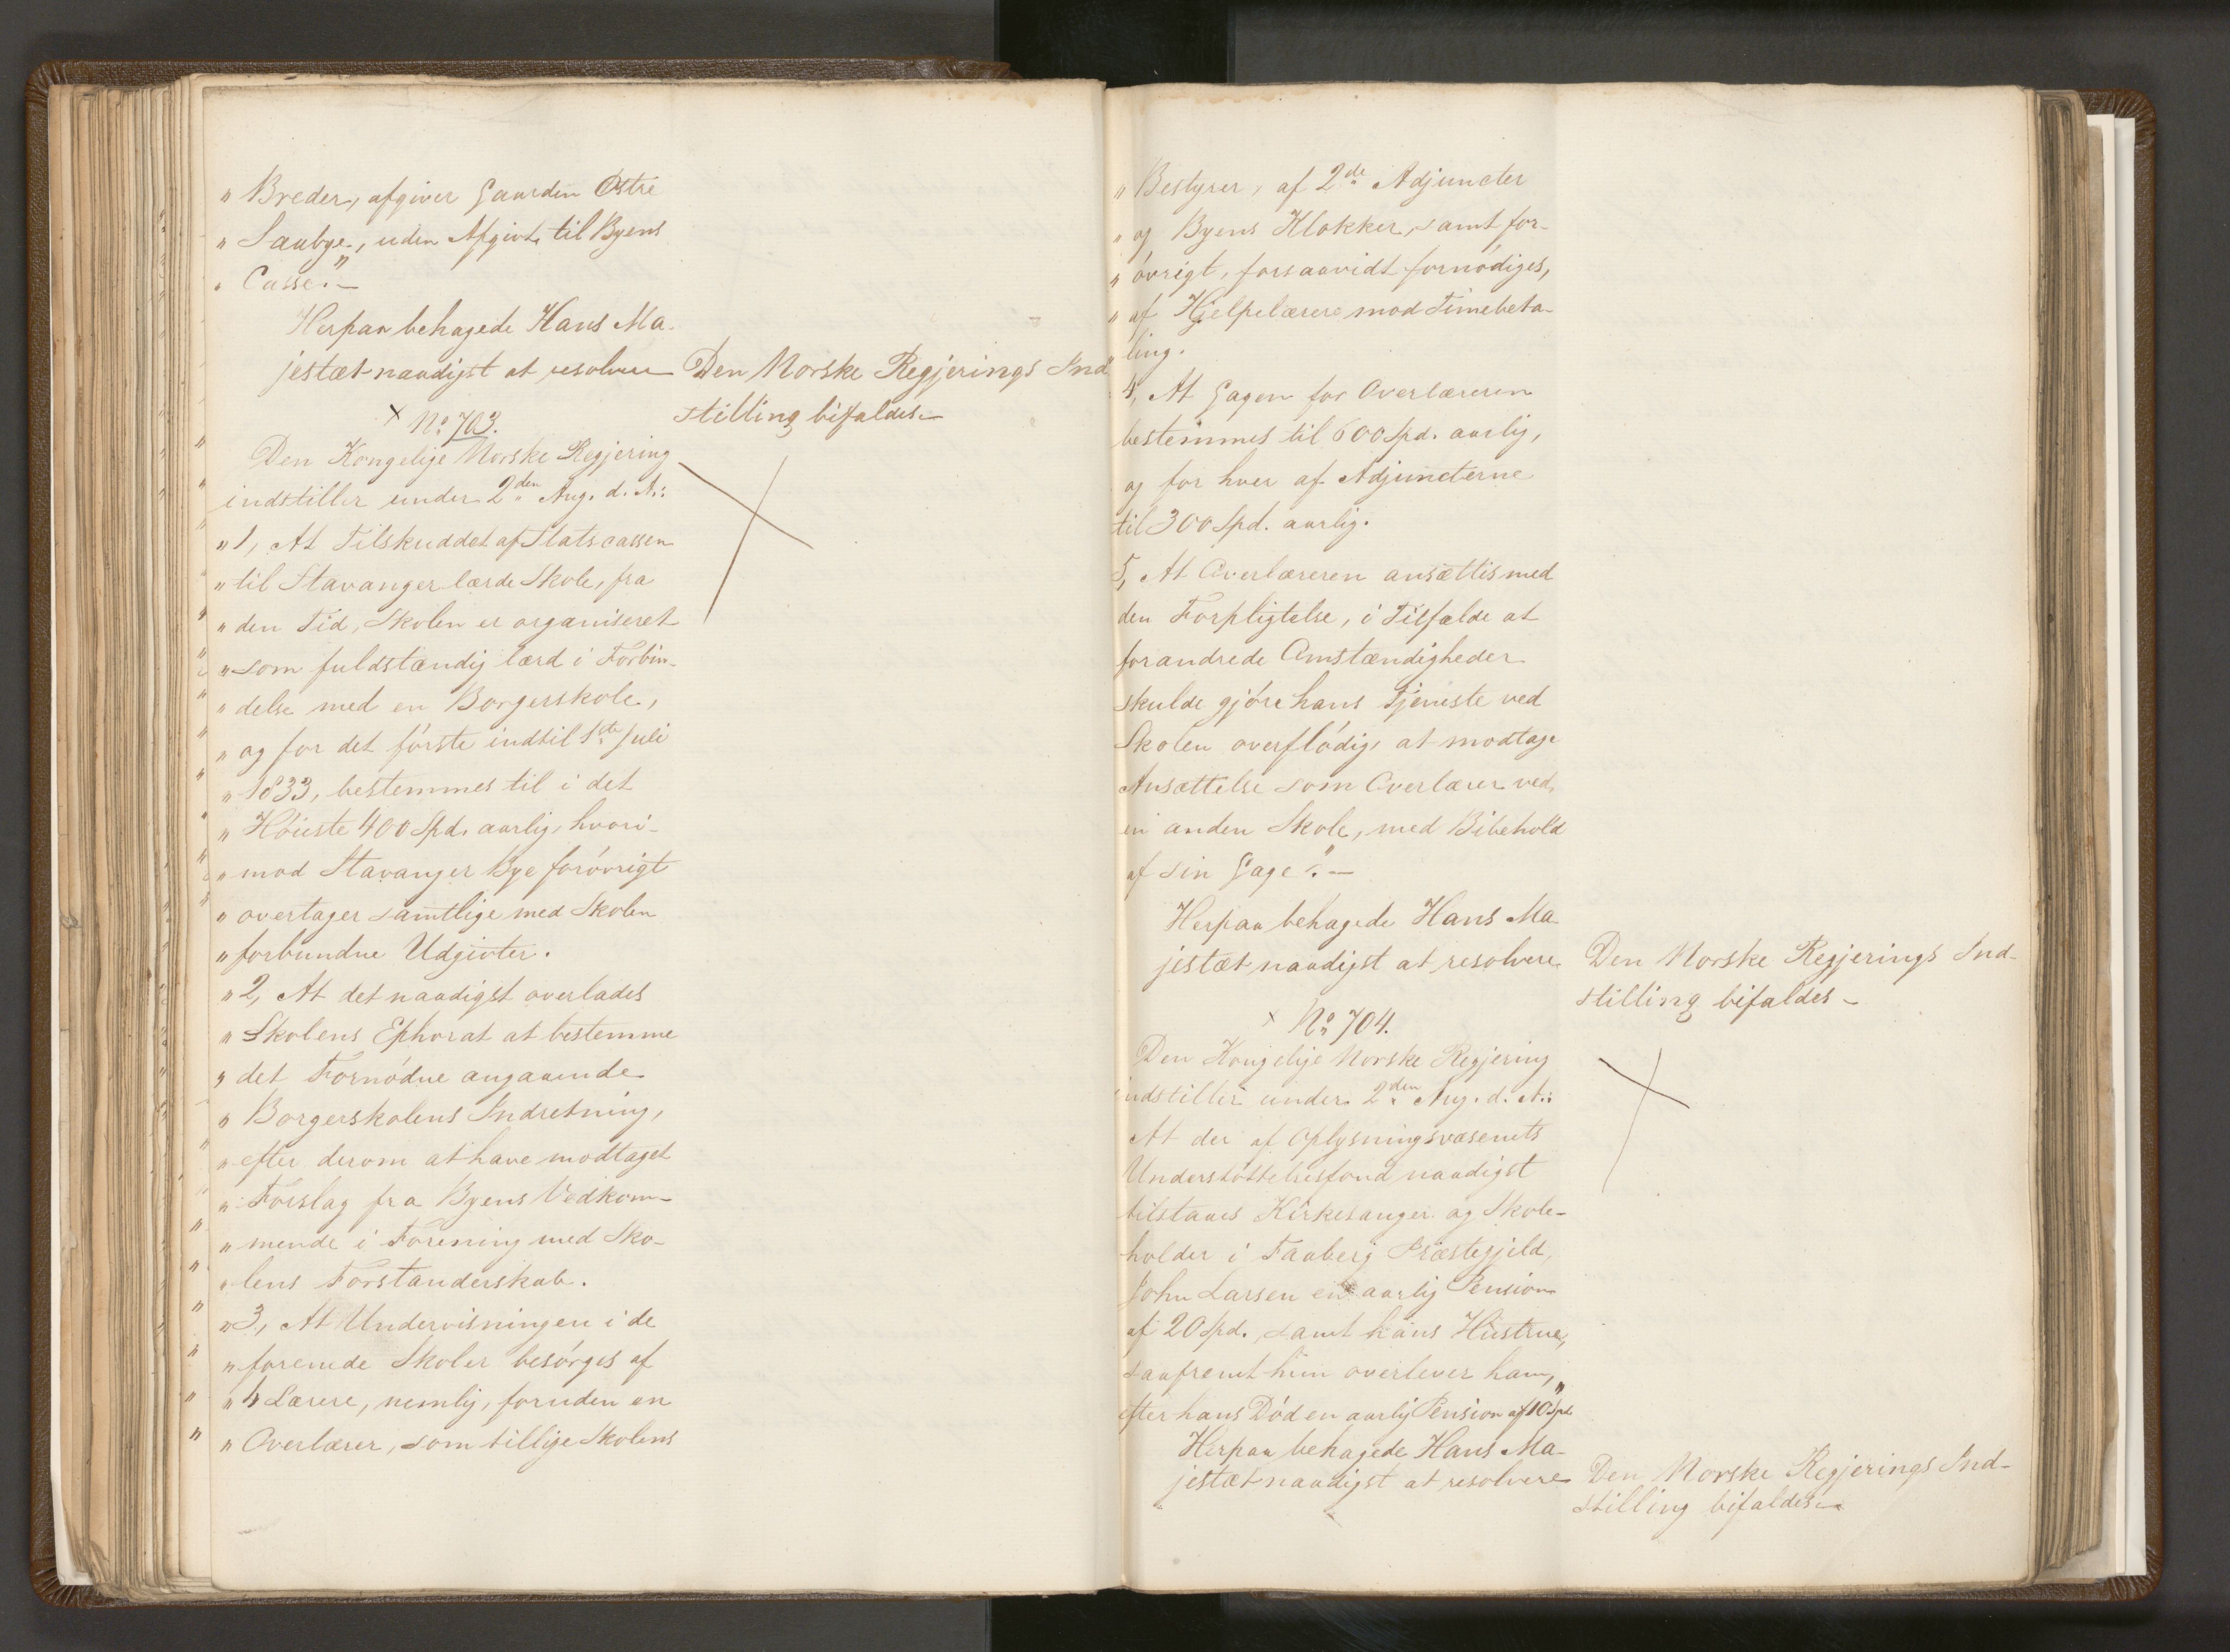 " Breder, afgiver Gaarden Østre
" Saxbye, uden Afgivt til Byens
" Casse". —
Herpaa behagede Hans Ma-
jestæt naadigst at resolvere
Den Norske Regjerings Ind-
stilling bifaldes. —
× No. 703.
Den Kongelige Norske Regjering
indstiller under 2den Aug. d. A.:
" 1, At Tilskuddet af Statscassen
" til Stavanger lærde Skole, fra
" den Tid, Skolen er organiseret
" som fuldstændig lærd i Forbin-
" delse med en Borgerskole,
" og for det første indtil 1ste Juli
" 1833, bestemmes til i det
" Høieste 400 Spd. aarlig, hvori-
" mod Stavanger Bye forøvrigt
" overtager samtlige med Skolen
" forbundne Udgivter.
" 2, At det naadigst overlades
" Skolens Ephorat at bestemme
" det Fornødne angaaende
" Borgerskolens Indretning,
" efter derom at have modtaget
" Forslag fra Byens Vedkom-
" mende i Forening med Sko-
" lens Forstanderskab.
" 3, At Undervisningen i de
" forenede Skoler besørges af
" 4 Lærere, nemlig, foruden en
" Overlærer, som tillige Skolens
" Bestyrer, af 2de Adjuncter
" og Byens Klokker, samt for-
" øvrigt, forsaavidt fornødiges,
" af Hjelpelærere mod Timebeta-
" ling.
4, At Gagen for Overlæreren
bestemmes til 600 Spd. aarlig,
og for hver af Adjuncterne
til 300 Spd. aarlig.
5, At Overlæreren ansættes med
den Forpligtelse, i Tilfælde at
forandrede Omstændigheder
skulde gjøre hans Tjeneste ved
Skolen overflødig, at modtage
Ansættelse som Overlærer ved
en anden Skole, med Bibehold
af sin Gage". —
Herpaa behagede Hans Ma-
jestæt naadigst at resolvere
Den Norske Regjerings Ind-
stilling bifaldes —
× No. 704.
Den Kongelige Norske Regjering
indstiller under 2den Aug. d. A.:
At der af Oplysningsvæsenets
Understøttelsesfond naadigst
tilstaaes Kirkesanger og Skole-
holder i Faaberg Præstegjeld,
John Larsen en aarlig Pension
af 20 Spd., samt hans Hustrue,
saafremt hun overlever ham,
efter hans Død en aarlig Pension af 10 Spd."
Herpaa behagede Hans Ma-
jestæt naadigst at resolvere
Den Norske Regjerings Ind-
stilling bifaldes. —